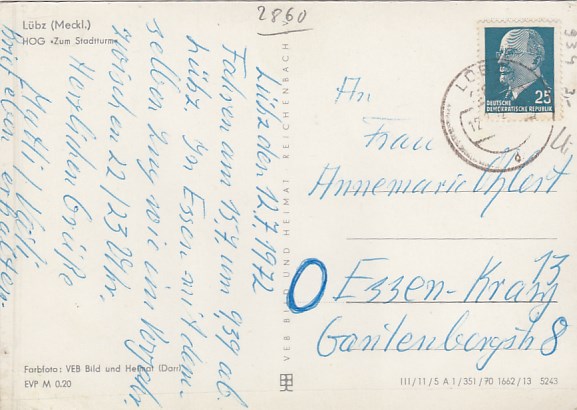 2860
Lübz (Meckl.)
HOG »Zum Stadtturm«
Lübz den 12.7.1972
Fahren am 15.7. um 9,39 ab
Lübz in Essen mit dem-
selben Zug wie im Vorjahr
zwischen 22/23 Uhr.
Herzlichen Grüße
Brief eben erhalten.
Farbfoto: VEB Bild und Heimat (Darr)
EVP M 0.20
VEB BILD UND HEIMAT REICHENBACH V
25
DEUTSCHE
DEMOKRATISCHE REPUBLIK
LÜBZ
12
934 2,-
An
Frau
Annemarie Ehlert
Essen-Kray 13
Gantenbergstr 8
III/11/5 A 1/351/70 1662/13 5243